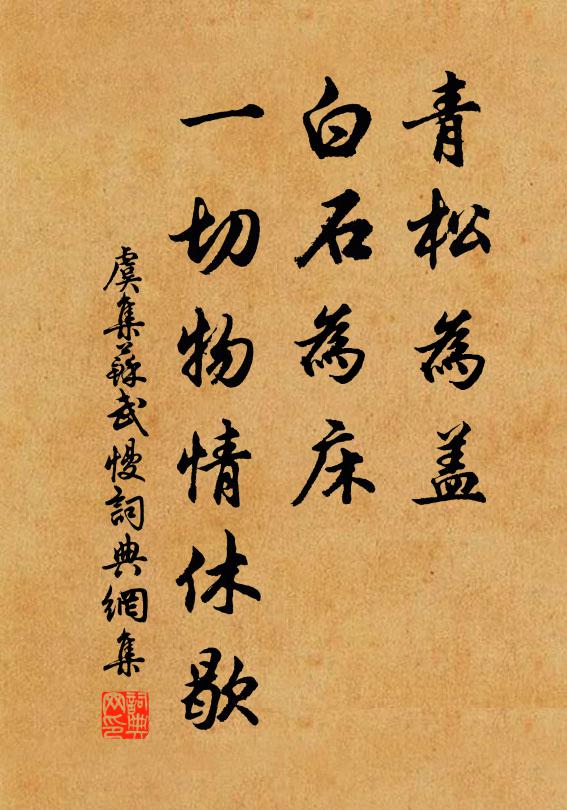 青松為蓋
白石為床
一切物情休歇
虞集蘇武慢詞典網集
詞典
网印